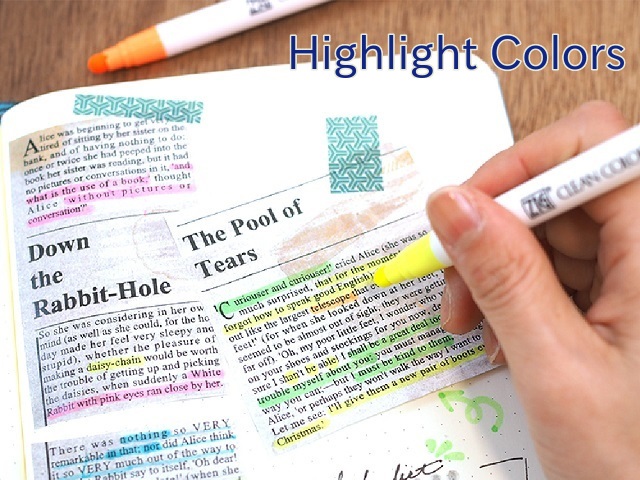 Highlight Colors
Alice was beginning to get very
tired of sitting by her sister on the
bank, and of having nothing to do:
once or twice she had peeped into the
book her sister was reading, but it had
no pictures or conversations in it, 'and
what is the use of a book,' thought
Alice 'without pictures or
conversation?'
Down
the
Rabbit-Hole
So she was considering in her ow
mind (as well as she could, for the ho
day made her feel very sleepy and
stupid), whether the pleasure of
making a daisy-chain would be worth
the trouble of getting up and picking
the daisies, when suddenly a White
Rabbit with pink eyes ran close by her.
There was nothing so VERY
remarkable in that; nor did Alice think
it so VERY much out of the way to
Rabbit say to itself, 'Oh dear!
The Pool of
Tears
'Curiouser and curiouser!' cried Alice (she was so
much surprised, that for the moment
forgot how to speak good English);
out like the largest telescope that
feet!' (for when she looked down at her feet
seemed to be almost out of sight, they were getting
far off). 'Oh, my poor little feet, I wonder who
on your shoes and stockings for you now,
sure I shan't be able! I shall be a great deal
trouble myself about you: you must manage
way you can; —but I must be kind to them,'
Alice, 'or perhaps they won't walk the way I want
Let me see: I'll give them a new pair of boots e
Christmas.'
ZIG CLEAN COLOR